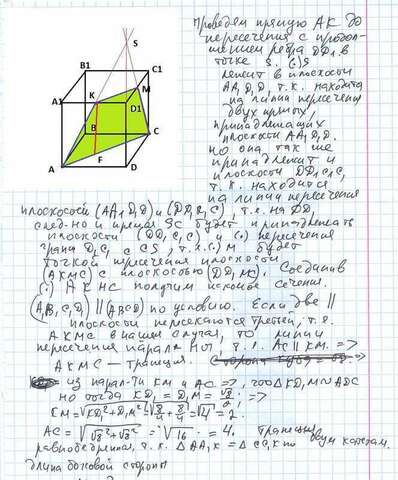 S
B1
C1
M
A1
K
D1
B
C
F
A
D
Проведем прямую АК до
пересечения с продол-
жением ребра DD₁ в
точке S. (·)S
лежит в плоскости
AA₁D₁D, т.к. находится
на линии пересечения
двух прямых,
принадлежащих
плоскости AA₁D₁D.
но она также
принадлежит и
плоскости DD₁C₁C,
т.к. находится
на линии пересечения
плоскостей (AA₁D₁D) и (DD₁C₁C), т.е. на DD₁
след-но и прямая SC будет принадлежать
плоскости (DD₁C₁C) (·) пересечения
грани D₁C₁ с CS, т.е. (·) M будет
точкой пересечения плоскости
(AKMC) с плоскостью Соединив
(·) AKMC получим искомое сечение.
(A₁B₁C₁D₁) || (ABCD) по условию. Если две ||
плоскости пересекаются третьей, т.е.
AKMC в нашем случае, то линии
пересечения паралл-ны, т.е. AC || KM. =>
AKMC – трапеция.
из парал-ти KM и AC =>, что ΔKD₁M ~ ΔADC
но тогда KD₁ = D₁M = √8/2 =>
KM = √KD₁² + D₁M² = √8/4 + 8/4 = √4 = 2.
AC = √√8² + √8² = √16 = 4. Трапеция
равнобедренная, т.к. ΔAA₁K = ΔCC₁K по двум катетам.
длина боковой стороны